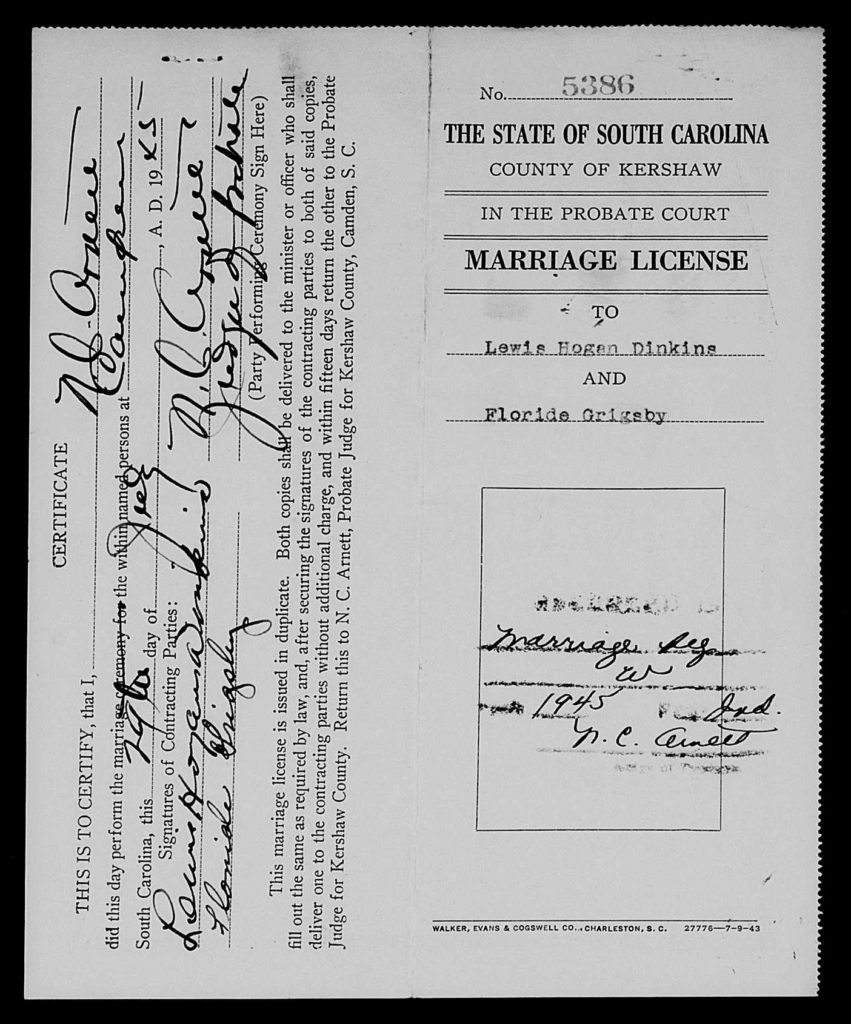 CERTIFICATE
THIS IS TO CERTIFY, that I, N. C. Arnett
did this day perform the marriage ceremony for the within named persons at Camden
South Carolina, this day of July, A. D. 1945
Signatures of Contracting Parties:
Lewis Hogan Dinkins N. C. Arnett
Floride Grigsby Judge of Probate
(Party Performing Ceremony Sign Here)
This marriage license is issued in duplicate. Both copies shall be delivered to the minister or officer who shall
fill out the same as required by law, and, after securing the signatures of the contracting parties to both of said copies,
deliver one to the contracting parties without additional charge, and within fifteen days return the other to the Probate
Judge for Kershaw County. Return this to N. C. Arnett, Probate Judge for Kershaw County, Camden, S. C.
No. 5386
THE STATE OF SOUTH CAROLINA
COUNTY OF KERSHAW
IN THE PROBATE COURT
MARRIAGE LICENSE
TO
Lewis Hogan Dinkins
AND
Floride Grigsby
Marriage Reg
W
1945 Ind.
N. C. Arnett
WALKER, EVANS & COGSWELL CO., CHARLESTON, S. C. 27776—7-9-43